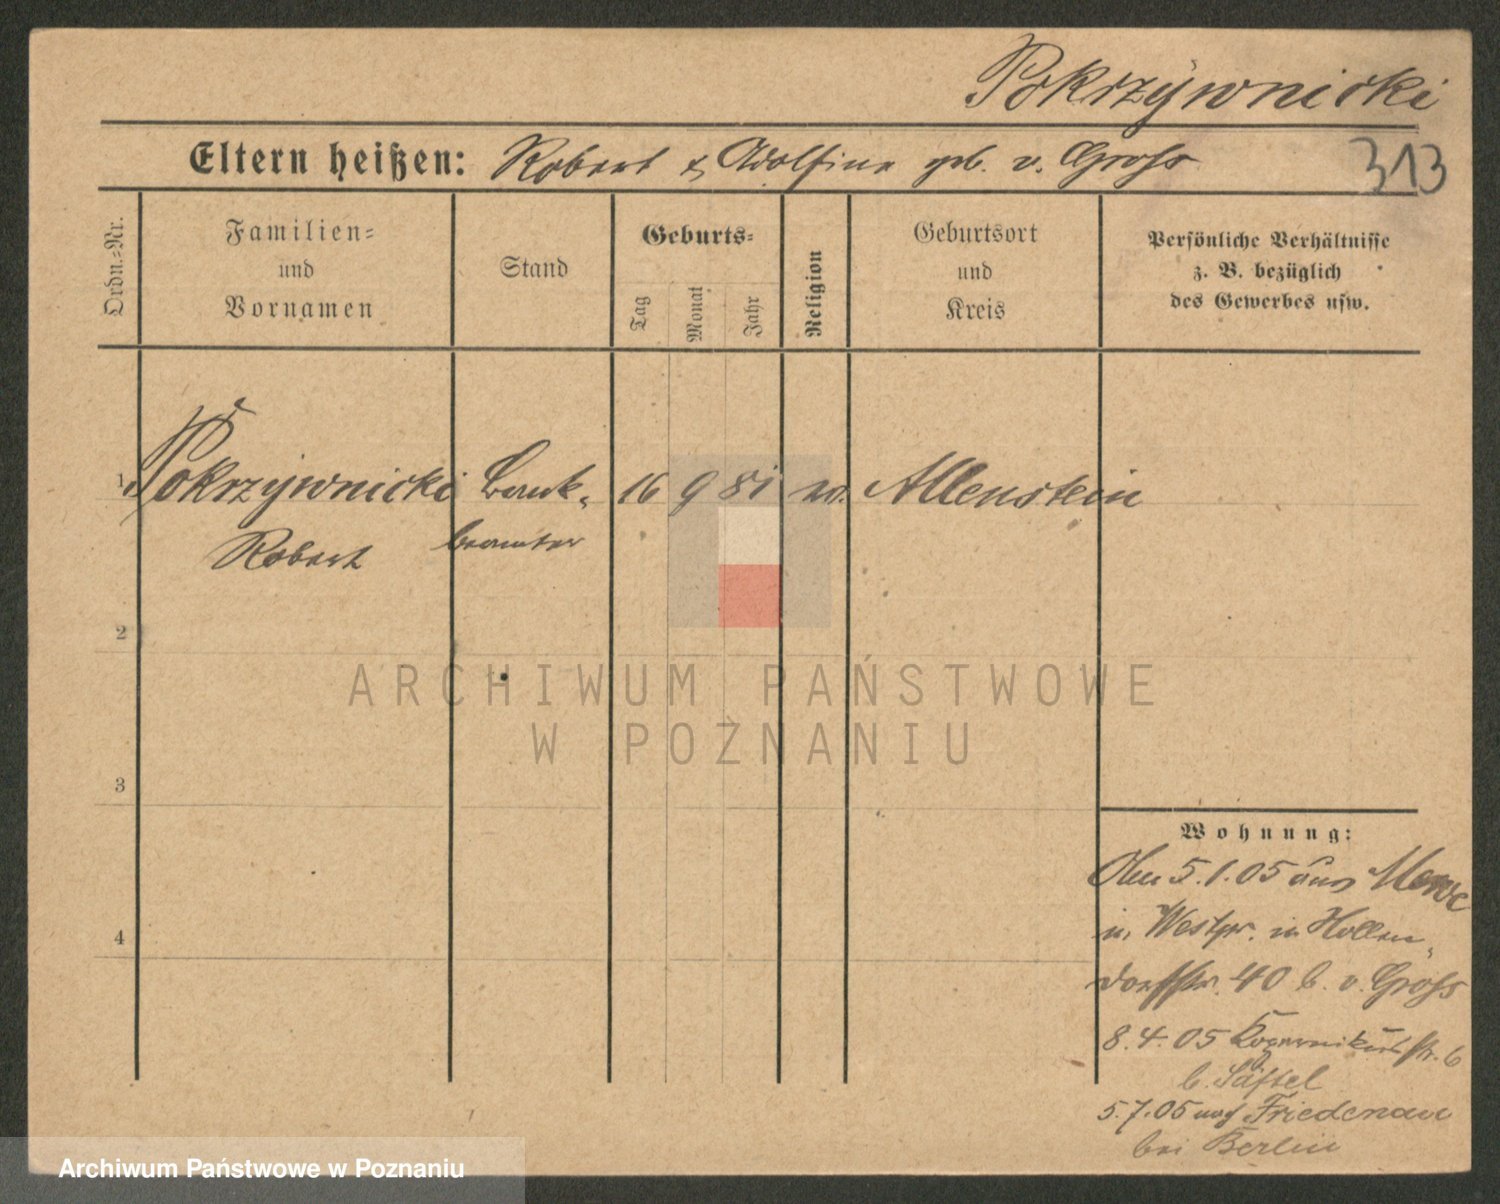 Pokrzywnicki
Eltern heißen: Robert & Adolfine geb. v. Gross
313
Ordn.-Nr.
Familien-
und
Vornamen
Stand
Geburts-
Tag
Monat
Jahr
Religion
Geburtsort
und
Kreis
Persönliche Verhältnisse
z. B. bezüglich
des Gewerbes usw.
1 Pokrzywnicki Bank- 16 9 81 ev. Allenstein
Robert beamter
2
3
4
Wohnung:
5.1.05 aus Mewe
in Westpr. in Hollen-
dorffstr. 40 b. v. Gross
8.4.05 Kopernikusstr. 6
b. Säftel
5.7.05 nach Friedenau
bei Berlin
ARCHIWUM PAŃSTWOWE
W POZNANIU
Archiwum Państwowe w Poznaniu